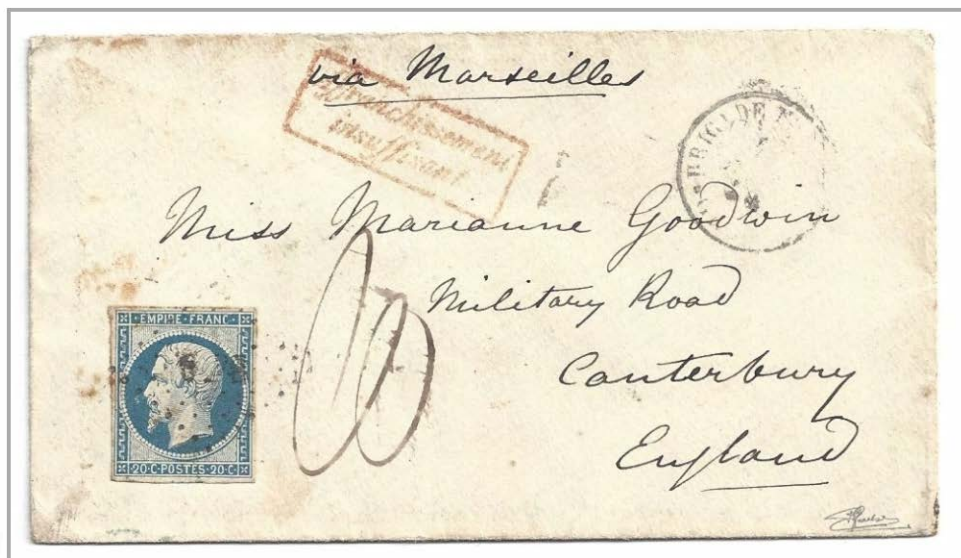 via Marseilles
Affranchissement
insuffisant
BRIGADE
Miss Marianne Goodwin
Military Road
Canterbury
England
EMPIRE · FRANC ·
20 · C · POSTES · 20 · C ·